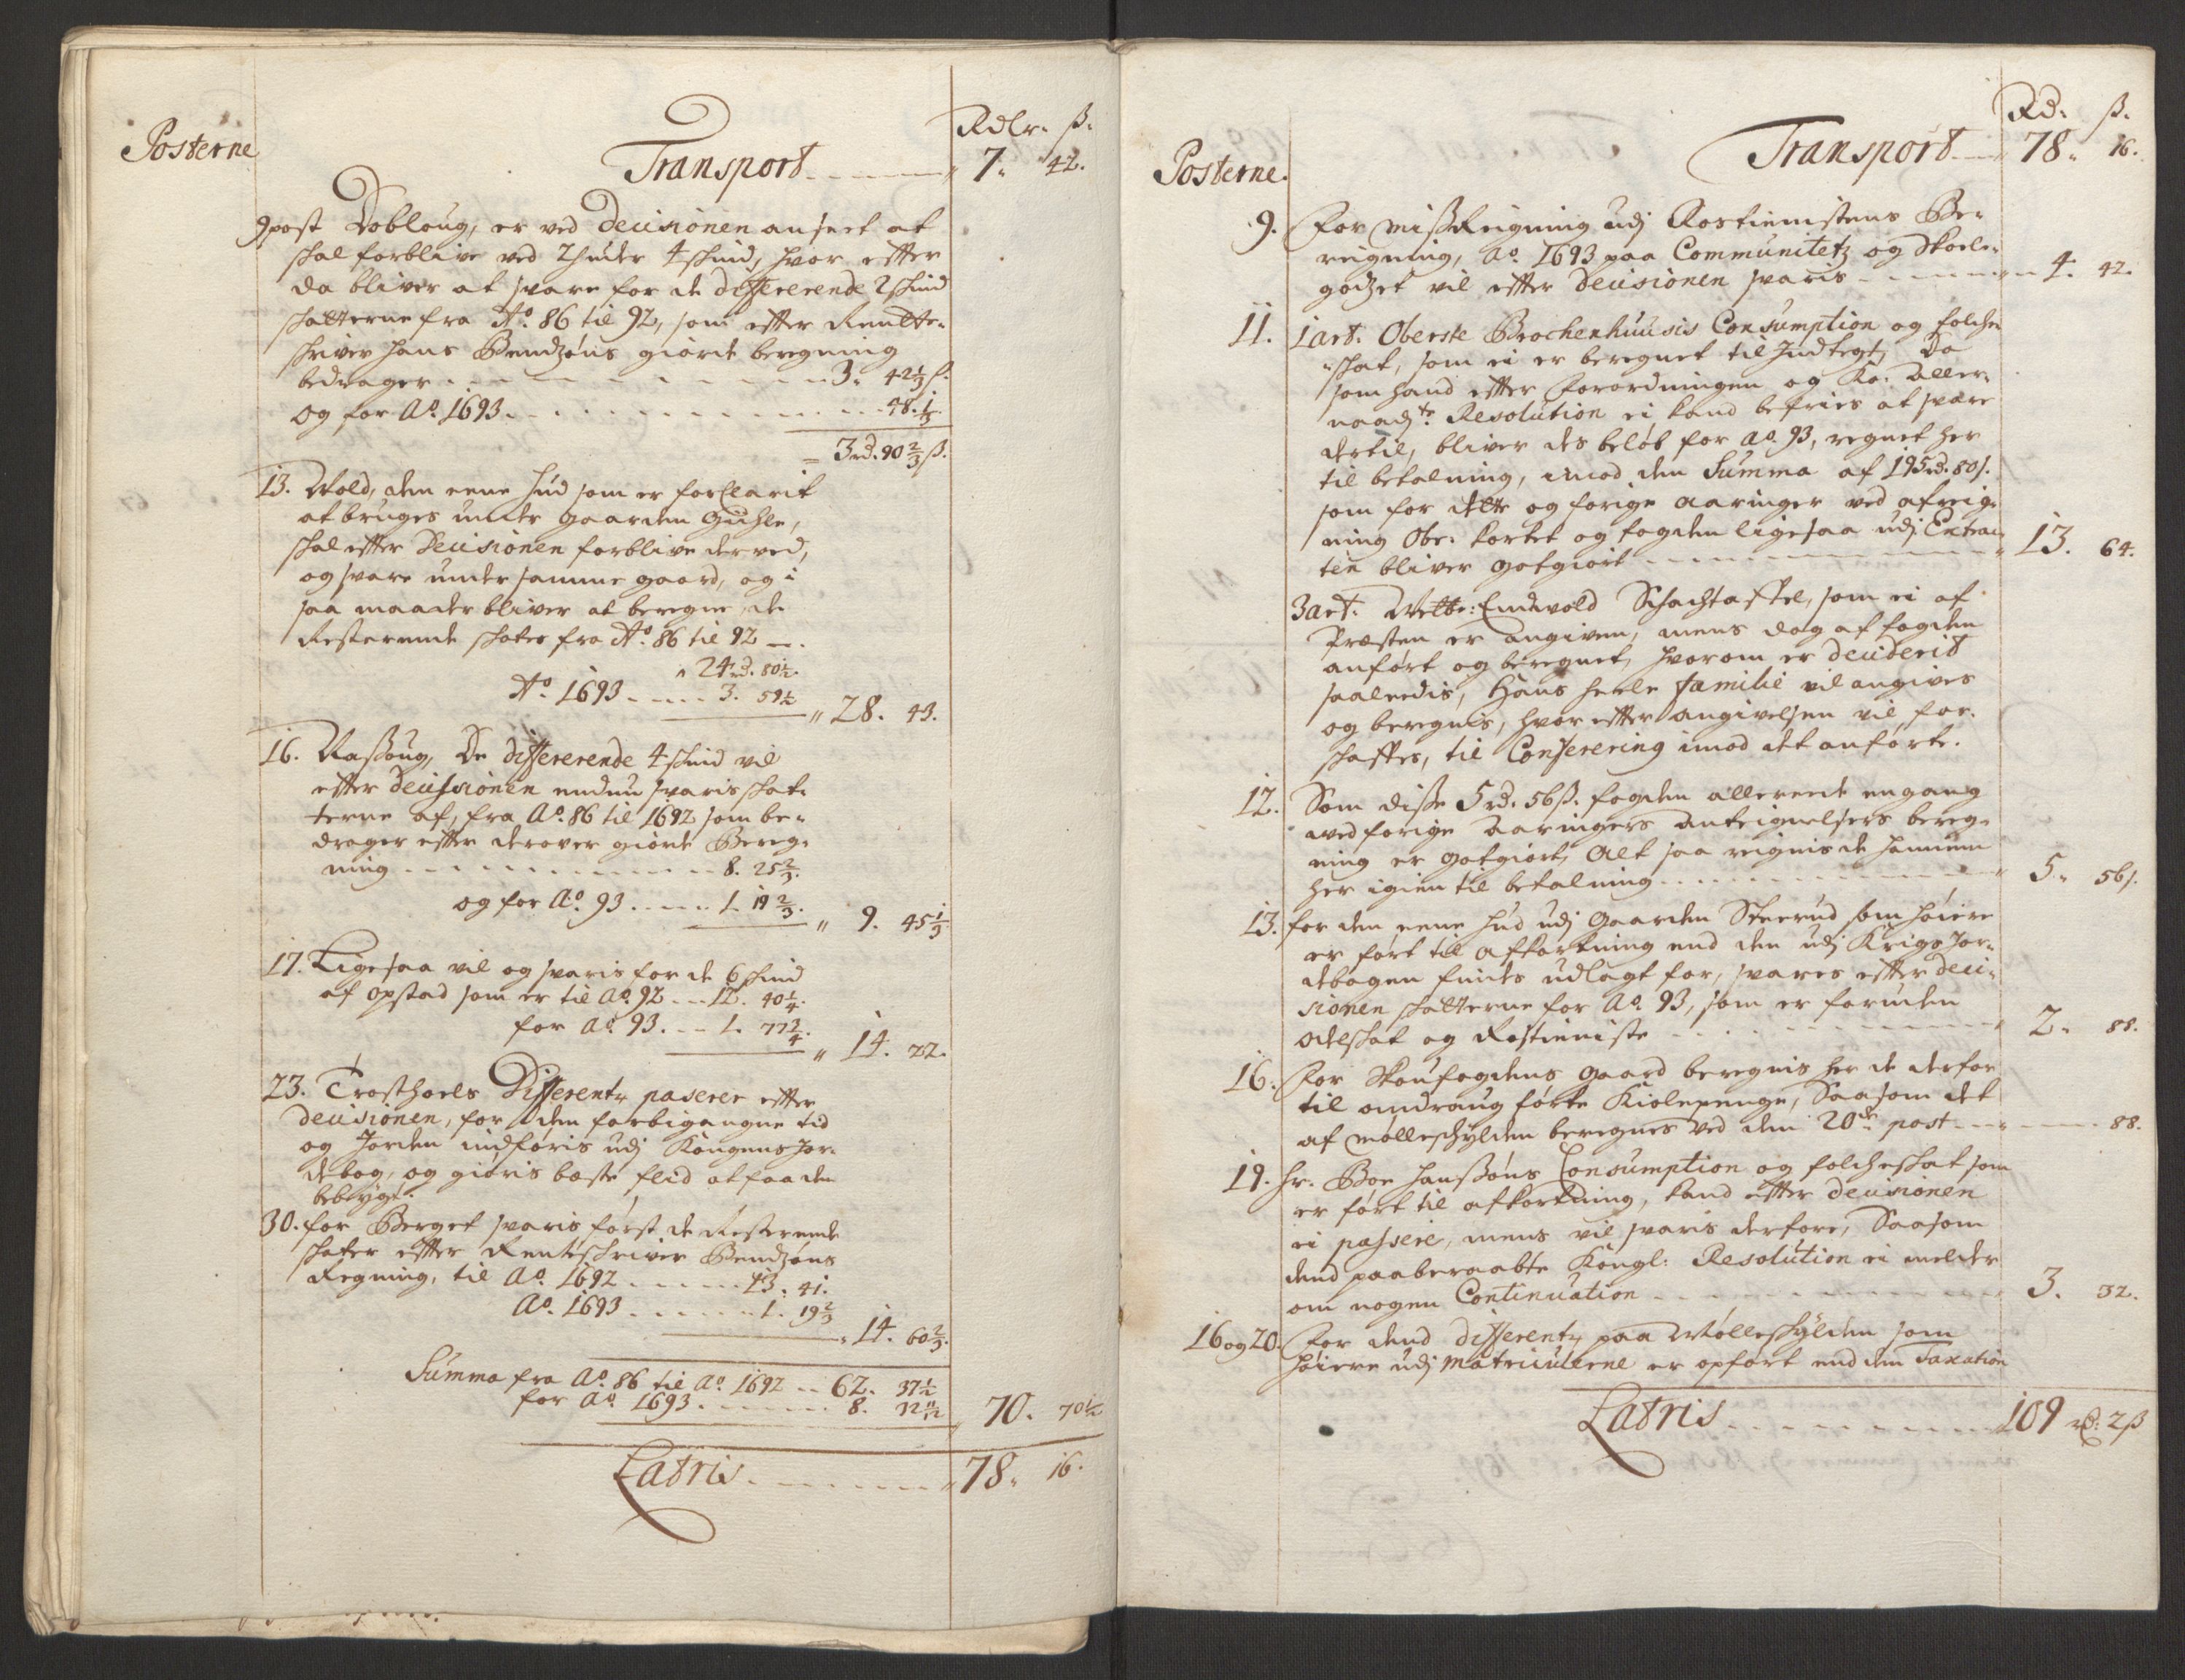 Rdlr. ß.
Posterne
Transport 7. 42.
9 post Dobloug, er ved Decisionen anseet at
skal forblive ved 2 huder 4 skind, hvor effter
da bliver at svare for de differerende 2 skind
skatterne fra Ao. 86 til 92, som effter Rentte-
skriver Hans Bendzøns giorde beregning
bedrager 3. 42 1/3 ß.
og for Ao. 1693 48. 1/3
3 rd. 90 2/3 ß.
13. Wold, den eene hud som er forclarit
at bruges under gaarden Guhle,
skal effter Decisionen forblive derved,
og svare under samme gaard, og i
saa maader bliver at beregne, de
Resterende skater fra Ao. 86 til 92
24 rd. 80 1/2.
Ao. 1693 3. 59 1/2 28. 43.
16. De differerende 4 skind vil
effter Decissionen endnu svaris skat-
terne af, fra Ao. 86 til 1692 som be-
drager effter derover giorde Bereg-
ning 8. 25 2/3.
og for Ao. 93 1. 19 2/3. 9. 45 1/3
17. Ligesaa vil og svaris for de 6 skind
af Opstad som er til Ao. 92 12. 40 1/4.
for Ao. 93. 1. 77 3/4. 14. 22.
23. Trosthoels Differentz paserer effter
Decisionen, for den forbigangne tid
og Jorden indføris udj Kongens Jor-
debog, og giøris beste flid at faa den
bebygt.
30. for Berget svaris først de Resterende
skater effter Renteskriver Bendzøns
Regning, til Ao. 1692 13. 41.
Ao. 1693 1. 19 2/3
14. 60 2/3.
Summa fra Ao. 86 til Ao. 1692 62. 37 1/2
for Ao. 1693 8. 32 11/12 70. 70 1/2
Latris 78. 16.
Rd. ß.
Transport 78. 16.
Posterne.
9. For misReigning udj Rostienistens Be-
reigning, Ao. 1693 paa Communitetz og Skole-
godzet vil effter Decisionen svaris 4. 42.
11. 1 art. Oberste Brochenhuusis Consumption og folche
skat, som ei er beregnet til Indtegt, Da
som hand effter Forordningen og Ko: Aller-
naadste Resolution ei kand befries at svare
dertil, bliver des beløb for Ao 93, regnet her
til betalning, imod den Summa af 195 rd. 80 s.
som for dette og forige aaringer ved afreig-
ning Obr. kortet og fogden ligesaa udj Extrac
ten bliver gotgiort 13. 64.
3 art. Schachtaftel, som ei af
Præsten er angiven, mens dog af fogden
anført og beregnet, hvorom er deciderit
saaledis, Hans heele familie vil angives
og beregnis, hvor effter angivelsen vil for-
skaffes, til Conferering imod det anførte.
12. Som disse 5 rd. 56 ß. fogden allereede engang
ved forige Aaringers Antreignelsers bereg-
ning er gotgiort, Alt saa reignis de hannem
her igien til betalning 5. 56 s.
13. for den eene hud udj gaarden Steerud som høiere
er ført til affkortning end den udj Krigs Jor-
debogen findes udlagt for, svares effter Deci-
sionen skatterne for Ao. 93, som er foruden
Odelskat og Rostieniste 2. 88.
16. For Skoufogdens gaard beregnis her de derfor
til omdraug førte Kiolepenge, Saasom det
af mølleskylden beregnes ved den 20de post 88.
19. Hr. Boe Hanssøns Consumption og folcheskat som
er ført til affkortning, kand effter Decisionen
ei passere, mens vil svaris derfore, Saasom
dend paaberaabte Kongl: Resolution ei melder
om nogen Continuation 3. 32.
16 og 20. For dend differentz paa Mølleskylden som
høiere udj matriculerne er opført end den Taxation
Latris 109 rd: 2 ß